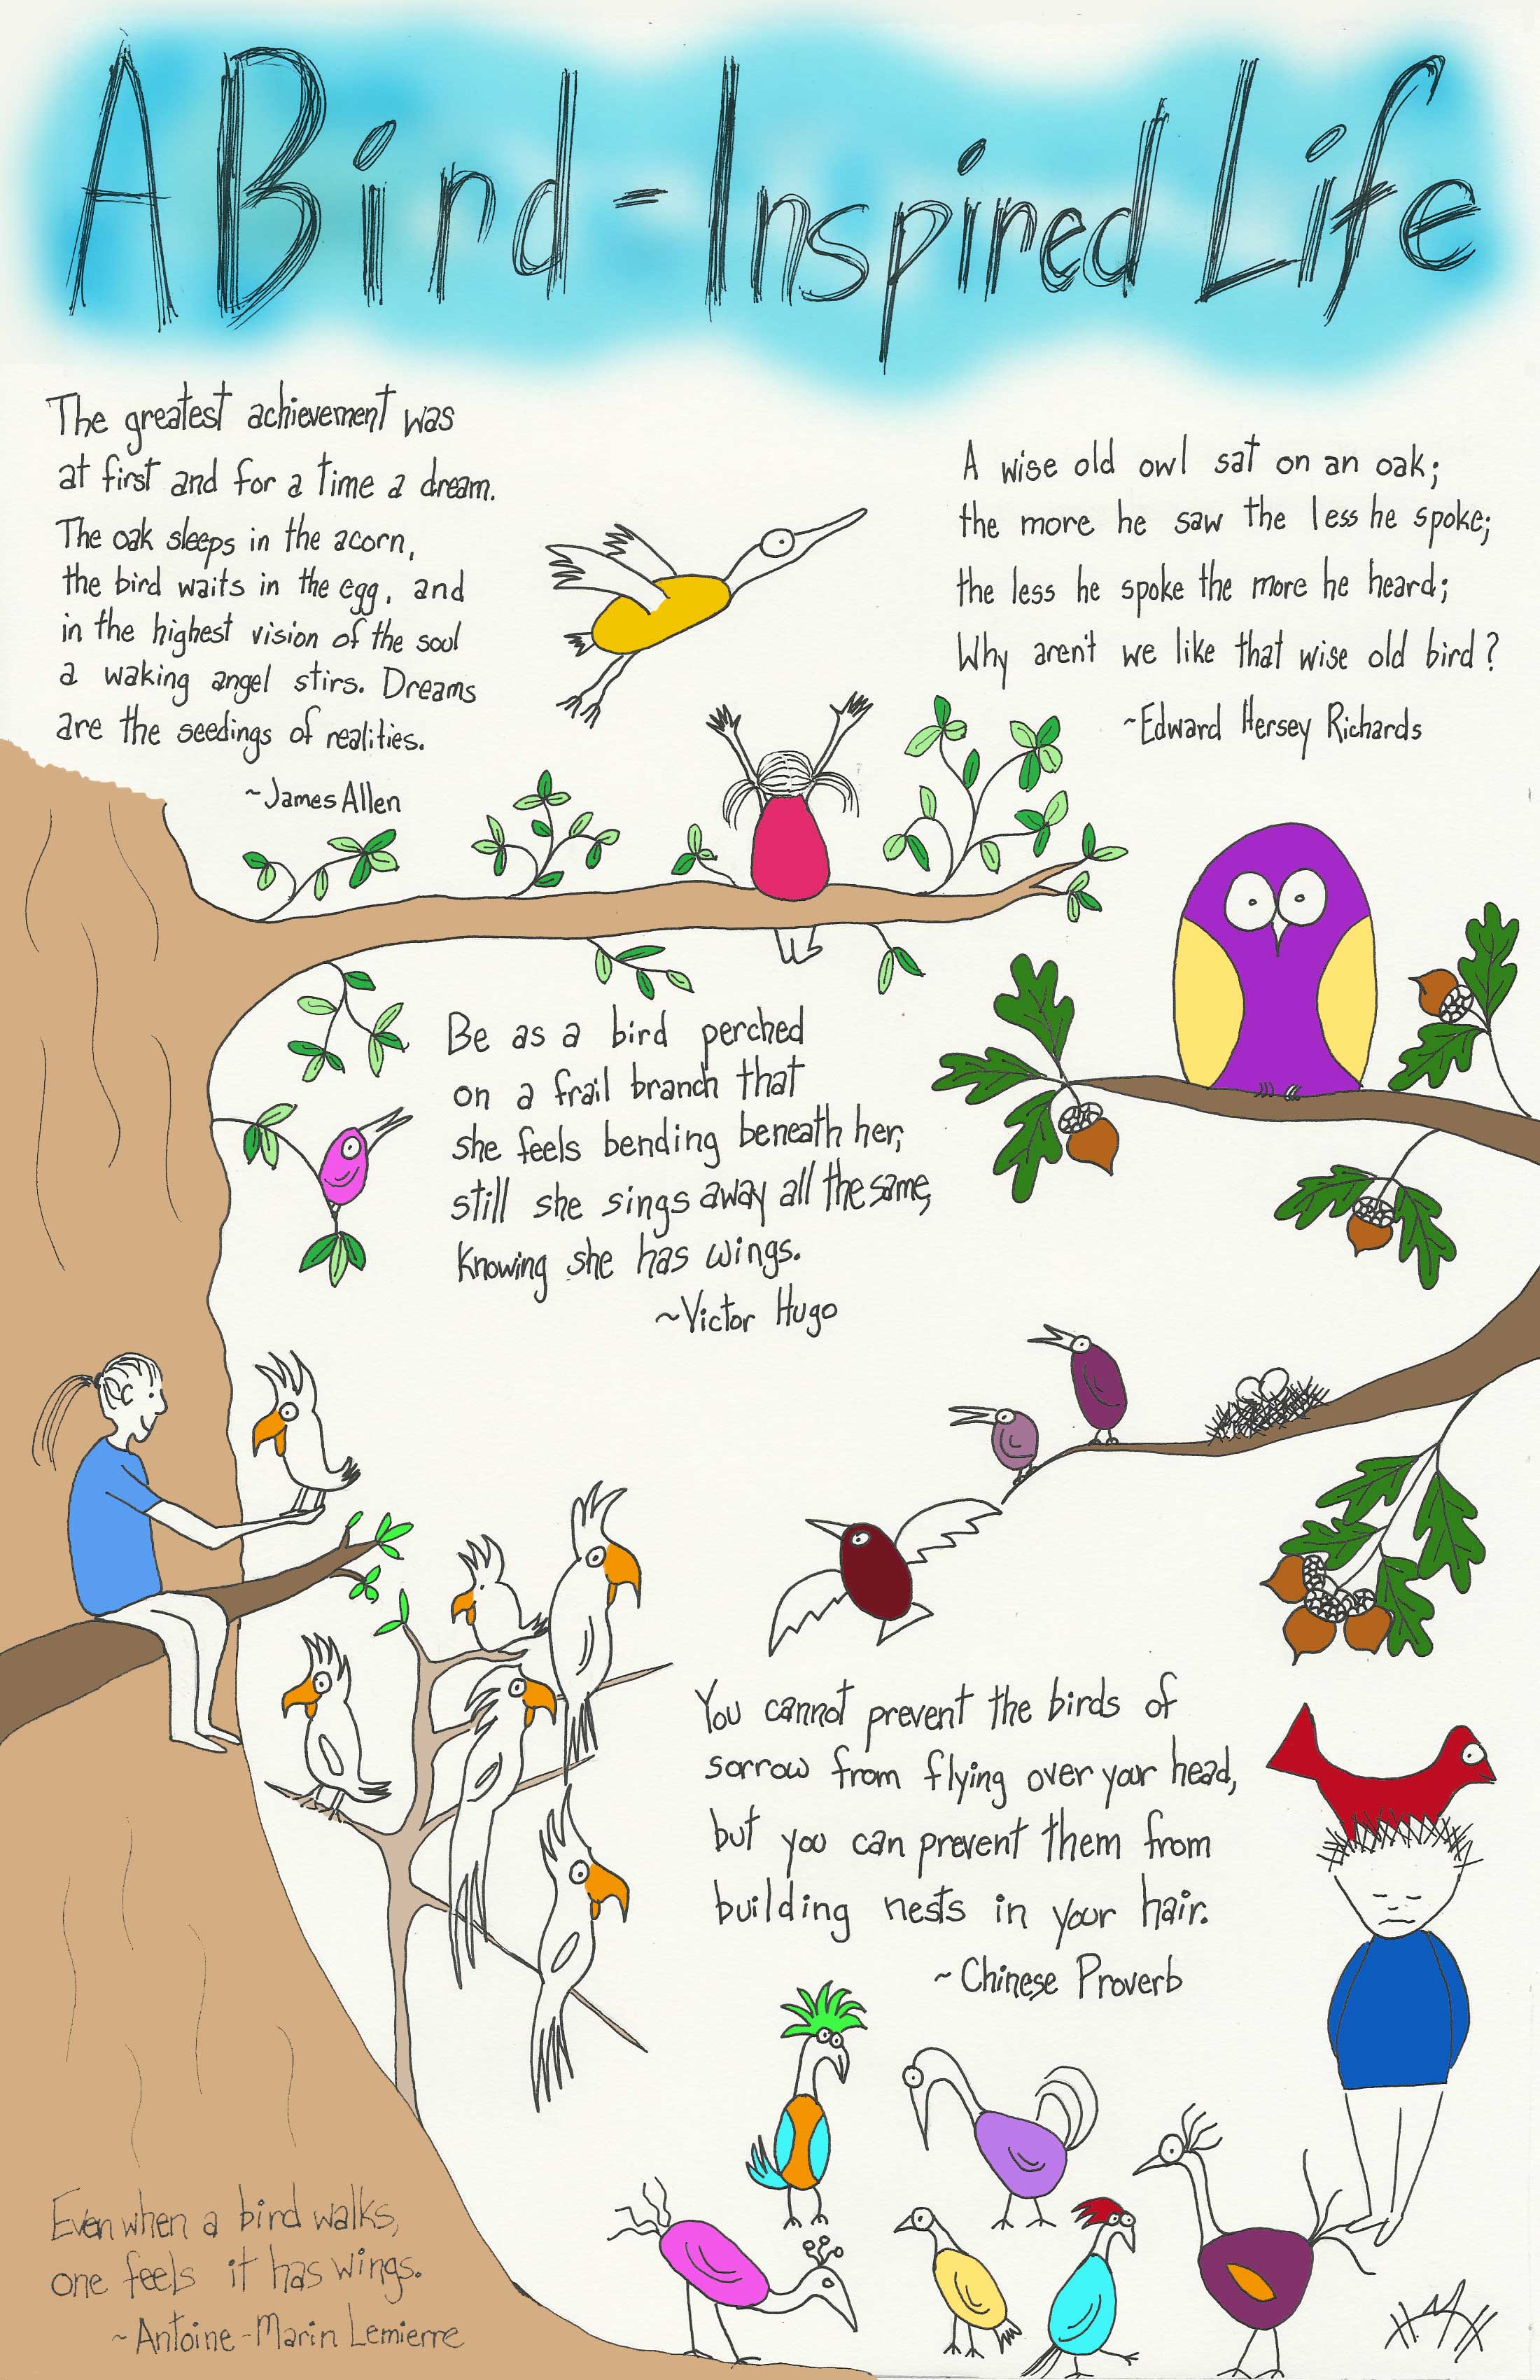 A Bird-Inspired Life
The greatest achievement was
at first and for a time a dream.
The oak sleeps in the acorn,
the bird waits in the egg, and
in the highest vision of the soul
a waking angel stirs. Dreams
are the seedings of realities.
~James Allen
A wise old owl sat on an oak;
the more he saw the less he spoke;
the less he spoke the more he heard;
Why aren't we like that wise old bird?
~Edward Hersey Richards
Be as a bird perched
on a frail branch that
she feels bending beneath her,
still she sings away all the same,
knowing she has wings.
~Victor Hugo
You cannot prevent the birds of
sorrow from flying over your head,
but you can prevent them from
building nests in your hair.
~Chinese Proverb
Even when a bird walks,
one feels it has wings.
~Antoine-Marin Lemierre